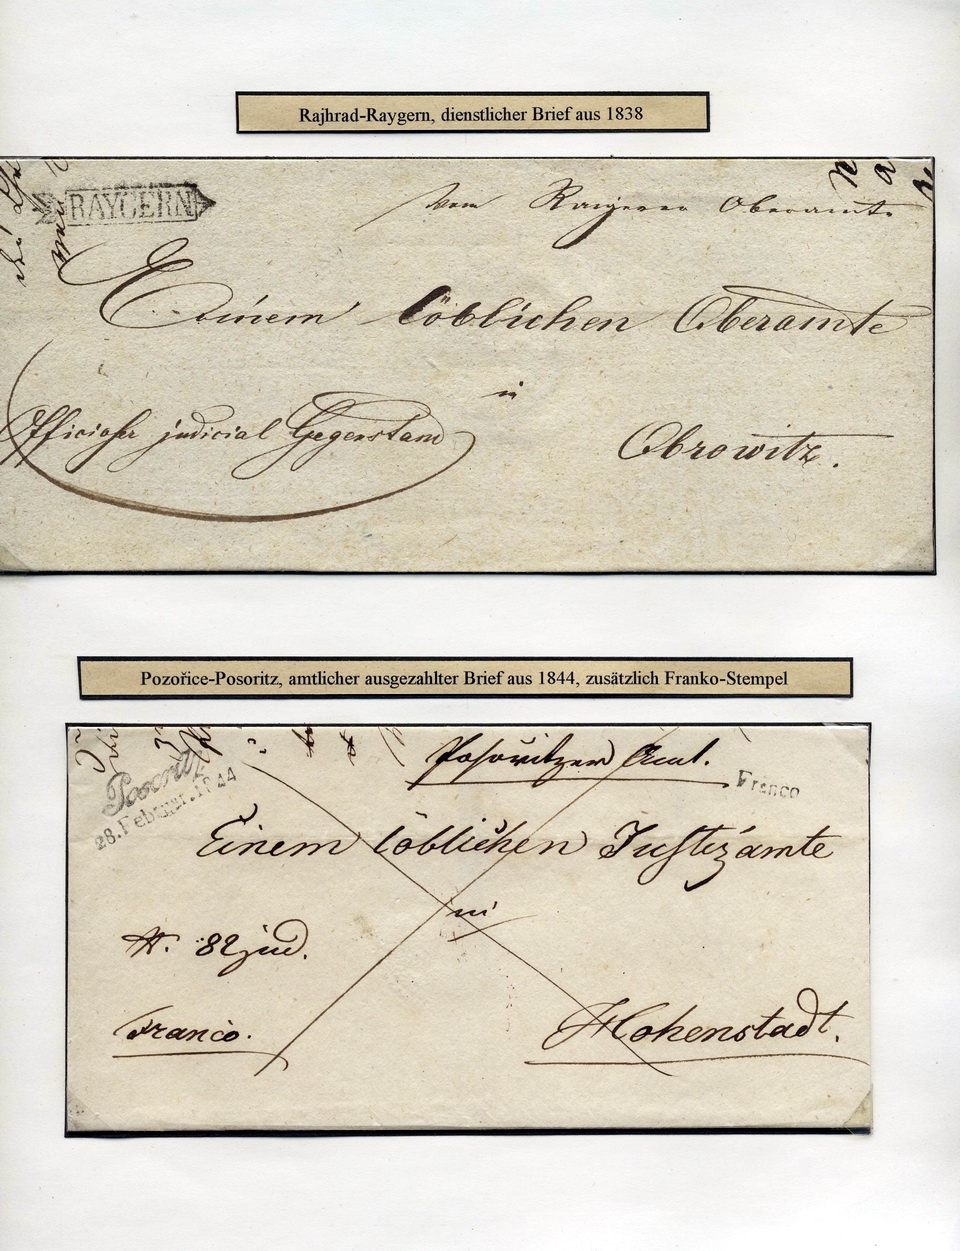 Rajhrad-Raygern, dienstlicher Brief aus 1838
RAYGERN
Vom Raigerer Oberamte
Einem löblichen Oberamte
in
judicial Gegenstand
Obrowitz.
Pozořice-Posoritz, amtlicher ausgezahlter Brief aus 1844, zusätzlich Franko-Stempel
Posoritz
28. Februar. 1844
Posoritzer Amt.
Franco
Einem löblichen Justizamte
in
N. 82 jud.
Franco.
Hohenstadt.